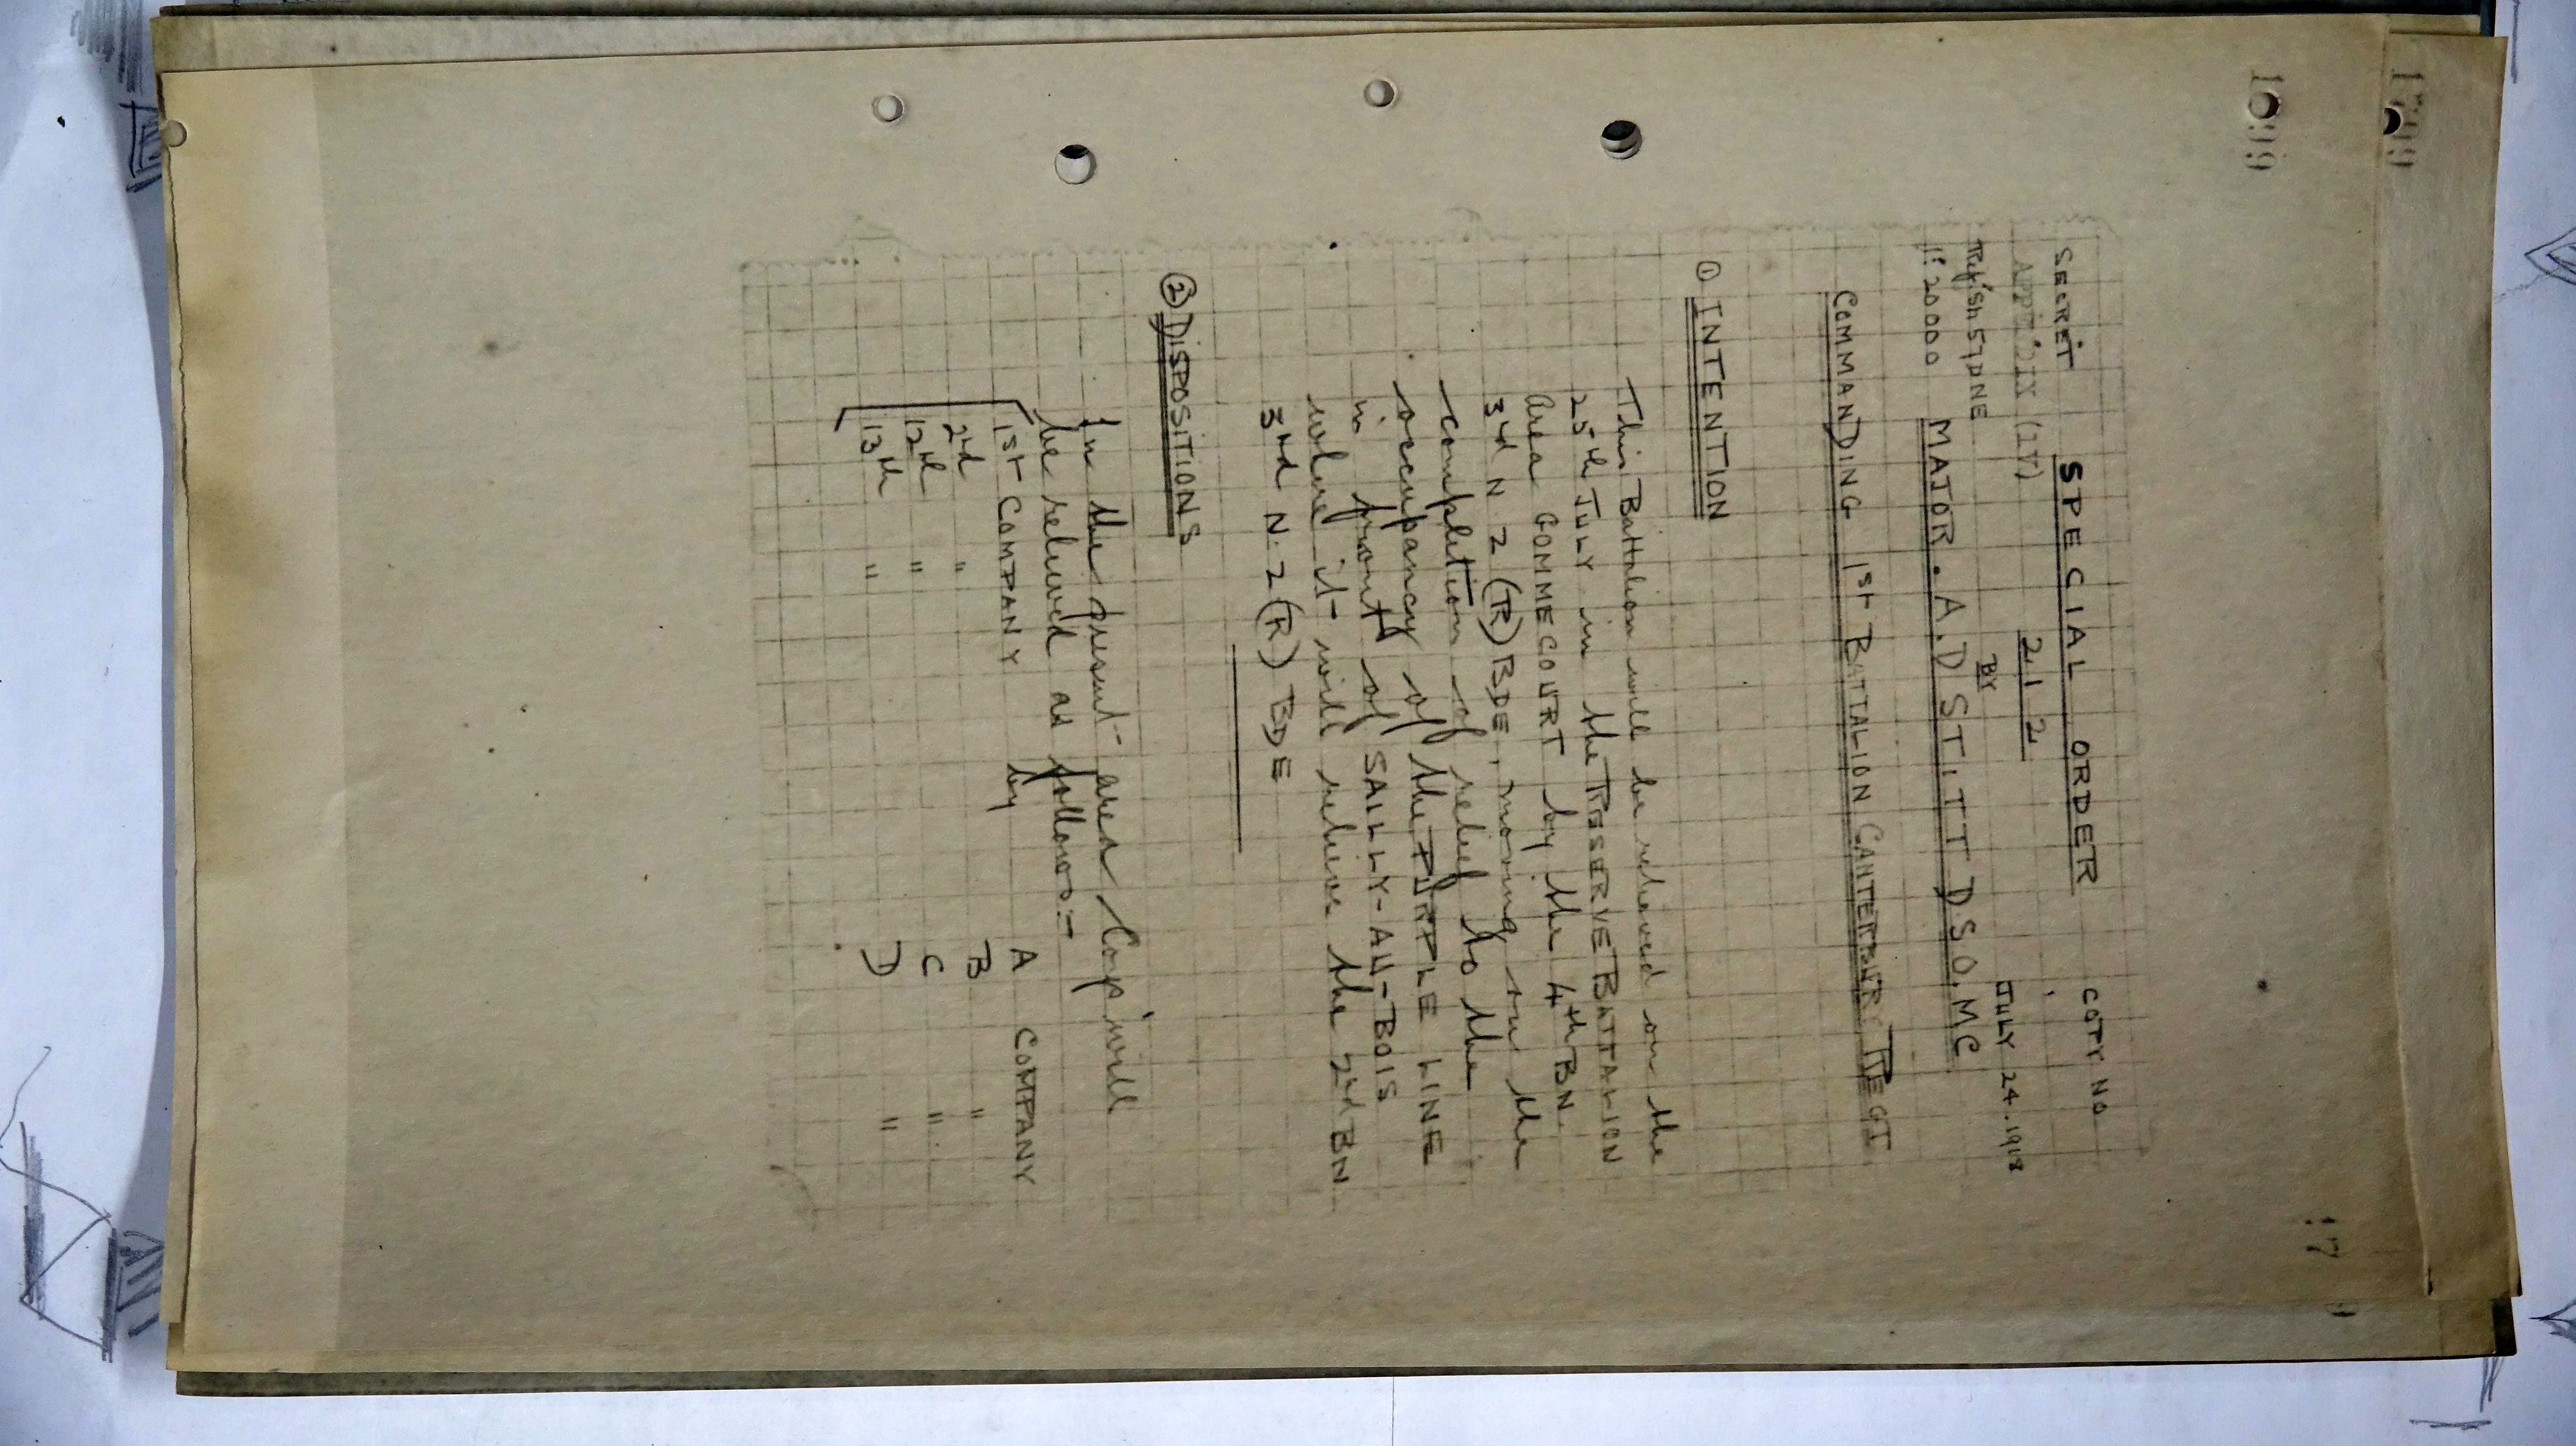 1599
17
SECRET
SPECIAL ORDER
COPY NO
APPENDIX (IV)
212
Ref Sh 57D NE
BY
JULY 24. 1918
1: 20000
MAJOR. A. D STITT DSO. MC
COMMANDING 1st BATTALION CANTERBURY REGT
① INTENTION
This Battalion will be relieved on the
25th JULY in the RESERVE BATTALION
area GOMMECOURT by the 4th BN.
3rd N Z (R) BDE, moving on the
completion of relief to the
occupancy of the PURPLE LINE
in front of SAILLY-AU-BOIS
where it will relieve the 2nd BN
3rd N. Z (R) BDE
② DISPOSITIONS
In the present area Coys will
be relieved as follows:-
1st COMPANY by A COMPANY
2nd " B "
12th " C "
13th " D "